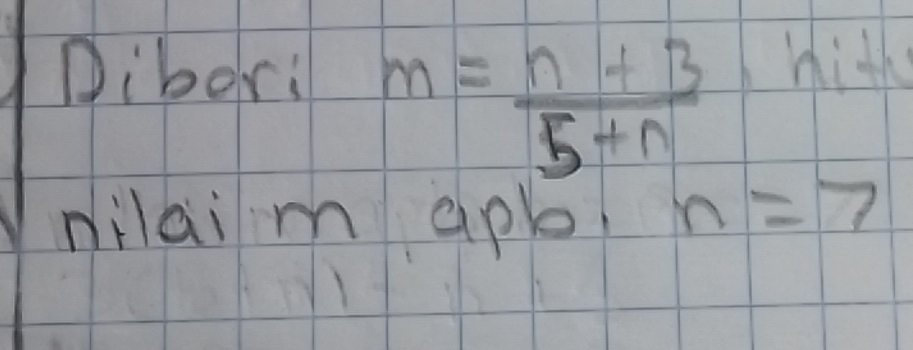 Diberi m = n + 3 / 5 + n, hitu
nilai m apb. n = 7